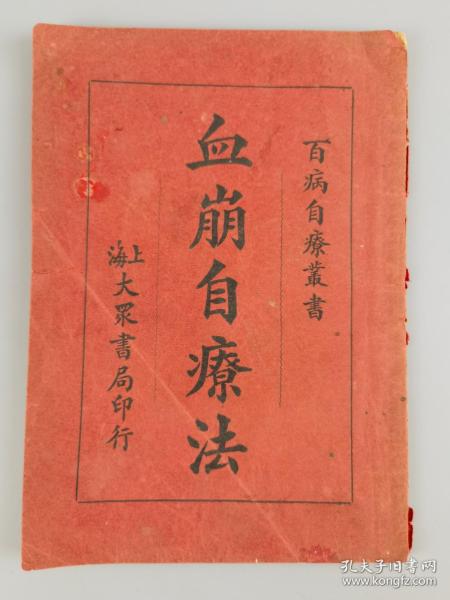 百病自療叢書
血崩自療法
上海大眾書局印行
孔夫子旧书网
www.kongfz.com